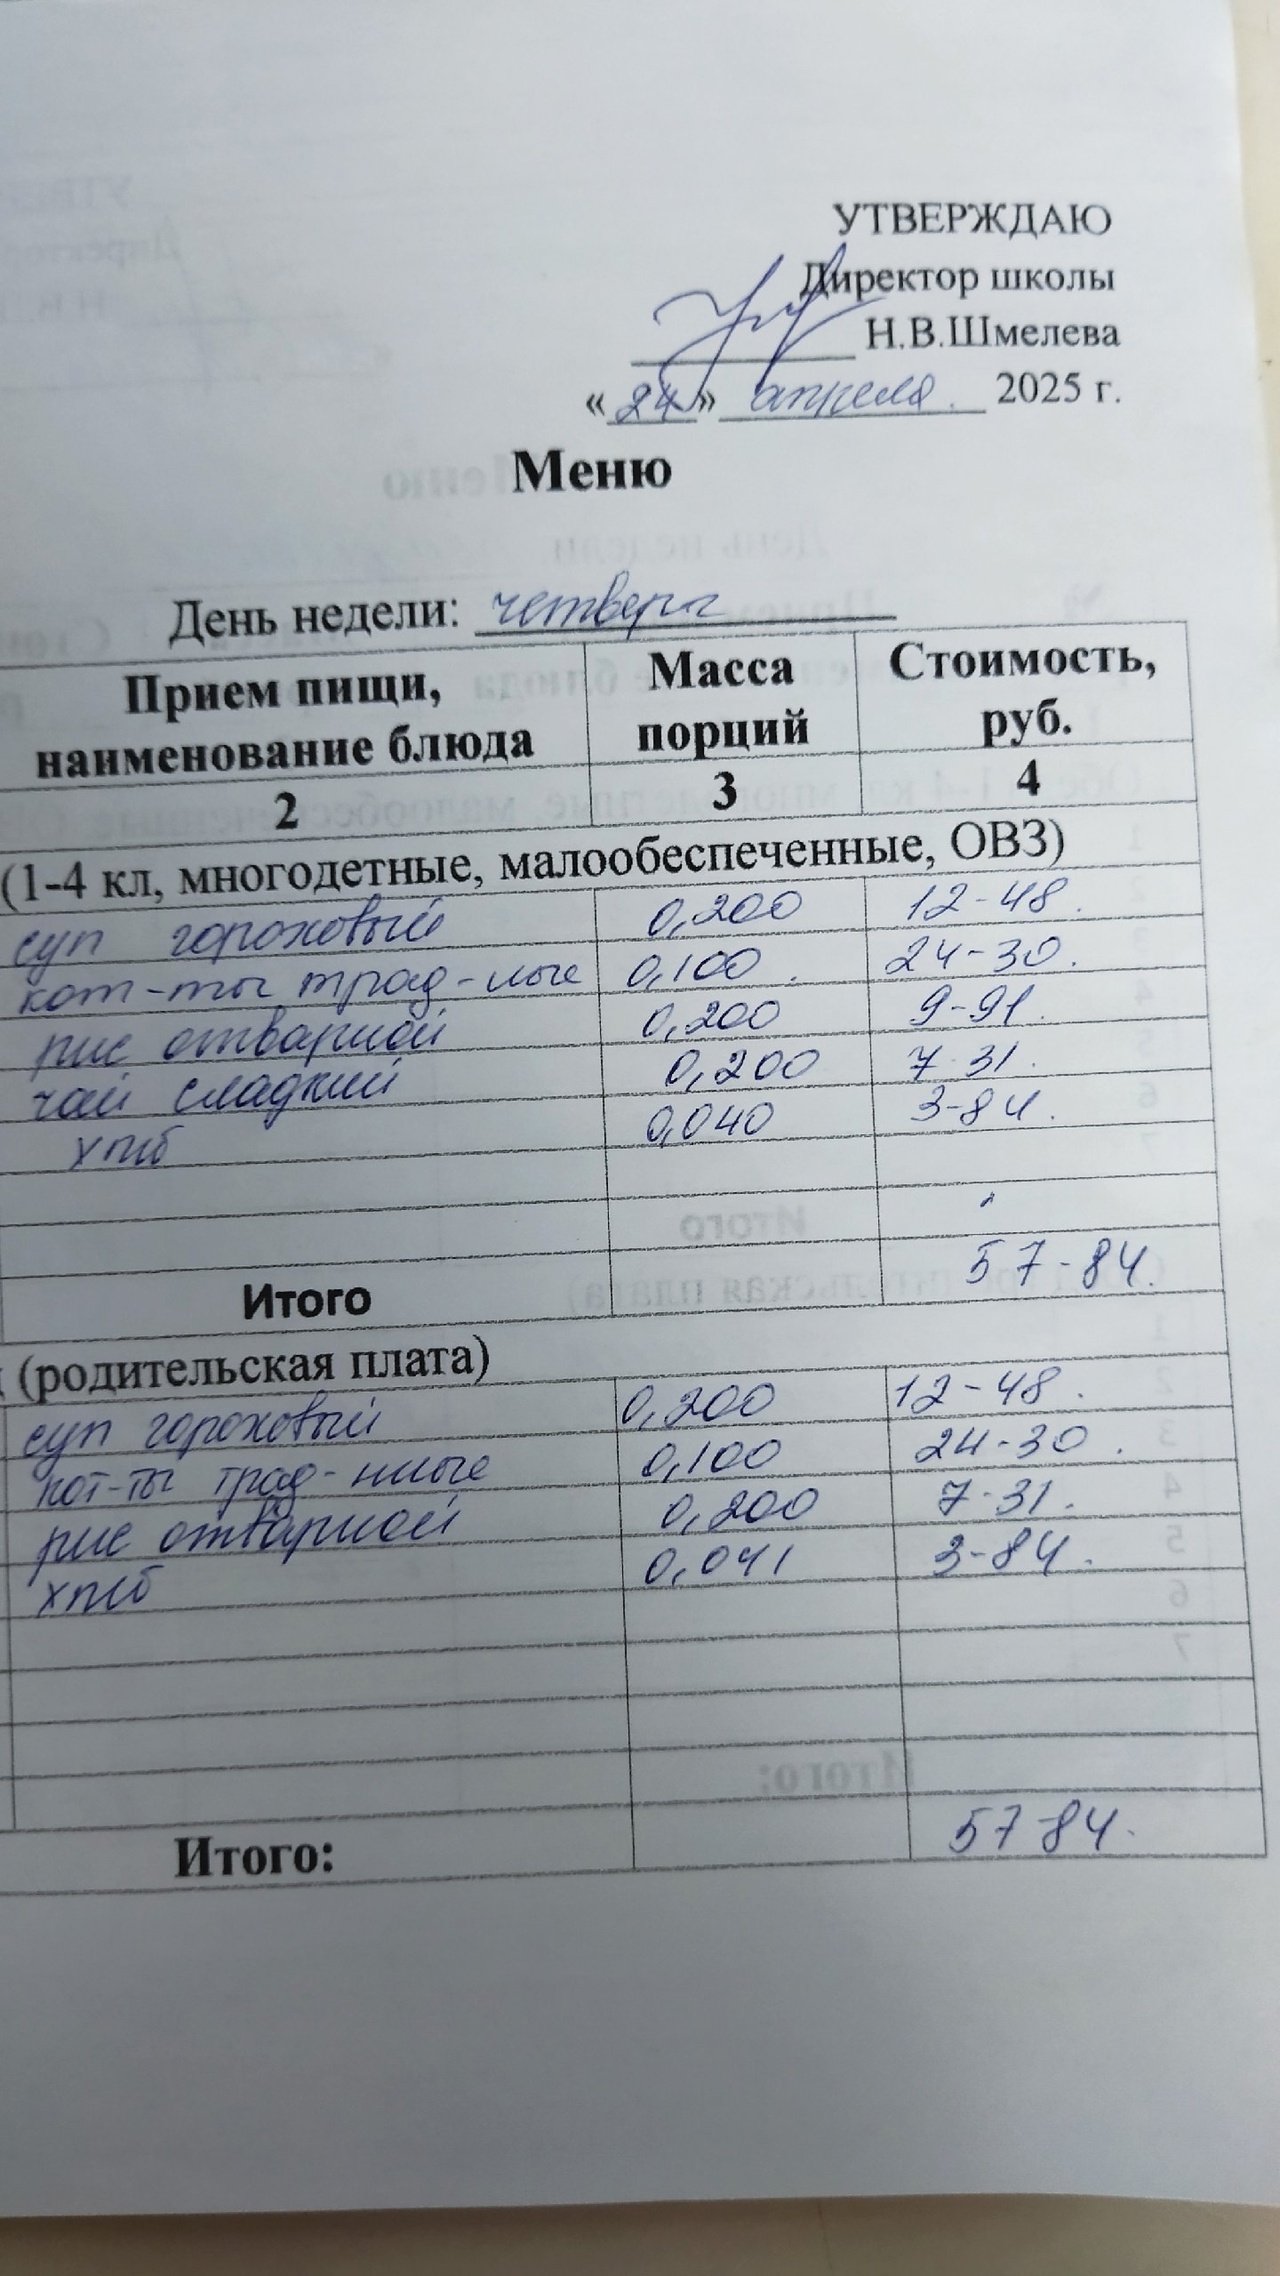 УТВЕРЖДАЮ
Директор школы
Н.В.Шмелева
«24» апреля 2025 г.
Меню
День недели: четверг
Прием пищи, наименование блюда Масса порций Стоимость, руб.
2 3 4
(1-4 кл, многодетные, малообеспеченные, ОВЗ)
суп гороховый 0,200 12-48.
кот-ты трад-ные 0,100 24-30.
рис отварной 0,200 9-91.
чай сладкий 0,200 7-31.
хлеб 0,040 3-84.
Итого 57-84.
(родительская плата)
суп гороховый 0,200 12-48.
кот-ты трад-нные 0,100 24-30.
рис отварной 0,200 7-31.
хлеб 0,041 3-84.
Итого: 57-84.